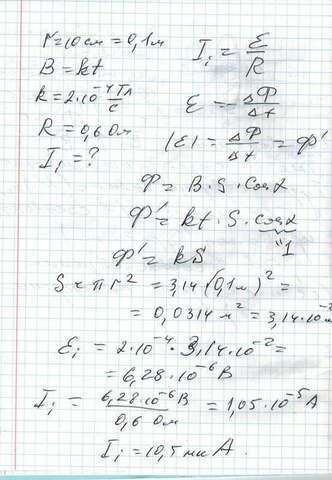 r = 10 см = 0,1 м
B = kt
k = 2·10⁻⁴ Тл/с
R = 0,6 Ом
I_i = ?
I_i = ℰ/R
ℰ = -ΔФ/Δt
|ℰ| = ΔФ/Δt = Ф'
Ф = B·S·cosα
Ф' = kt·S·cosα
"1
Ф' = kS
S = πr² = 3,14·(0,1м)² =
= 0,0314 м² = 3,14·10⁻² м
ℰ_i = 2·10⁻⁴·3,14·10⁻² =
= 6,28·10⁻⁶ В
I_i = 6,28·10⁻⁶ В/0,6 Ом = 1,05·10⁻⁵ А
I_i = 10,5 мкА.